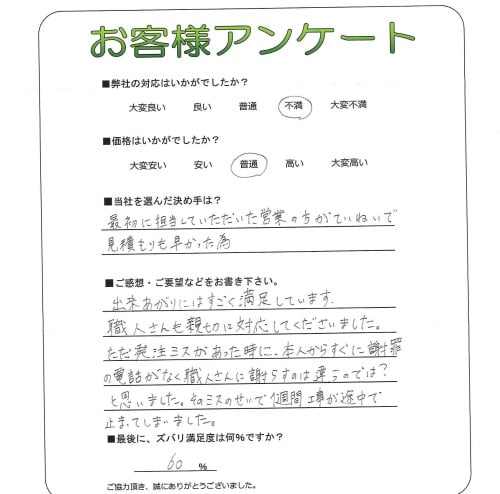 お客様アンケート
■弊社の対応はいかがでしたか？
大変良い 良い 普通 不満 大変不満
■価格はいかがでしたか？
大変安い 安い 普通 高い 大変高い
■当社を選んだ決め手は？
最初に担当していただいた営業の方がていねいで
見積もりも早かった為
■ご感想・ご要望などをお書き下さい。
出来あがりにはすごく満足しています.
職人さんも親切に対応してくださいました。
ただ発注ミスがあった時に、本人からすぐに謝罪
の電話がなく職人さんに謝らすのは違うのでは？
と思いました。そのミスのせいで1週間工事が途中で
止まてしまいました。
■最後に、ズバリ満足度は何％ですか？
60 ％
ご協力頂き、誠にありがとうございました。